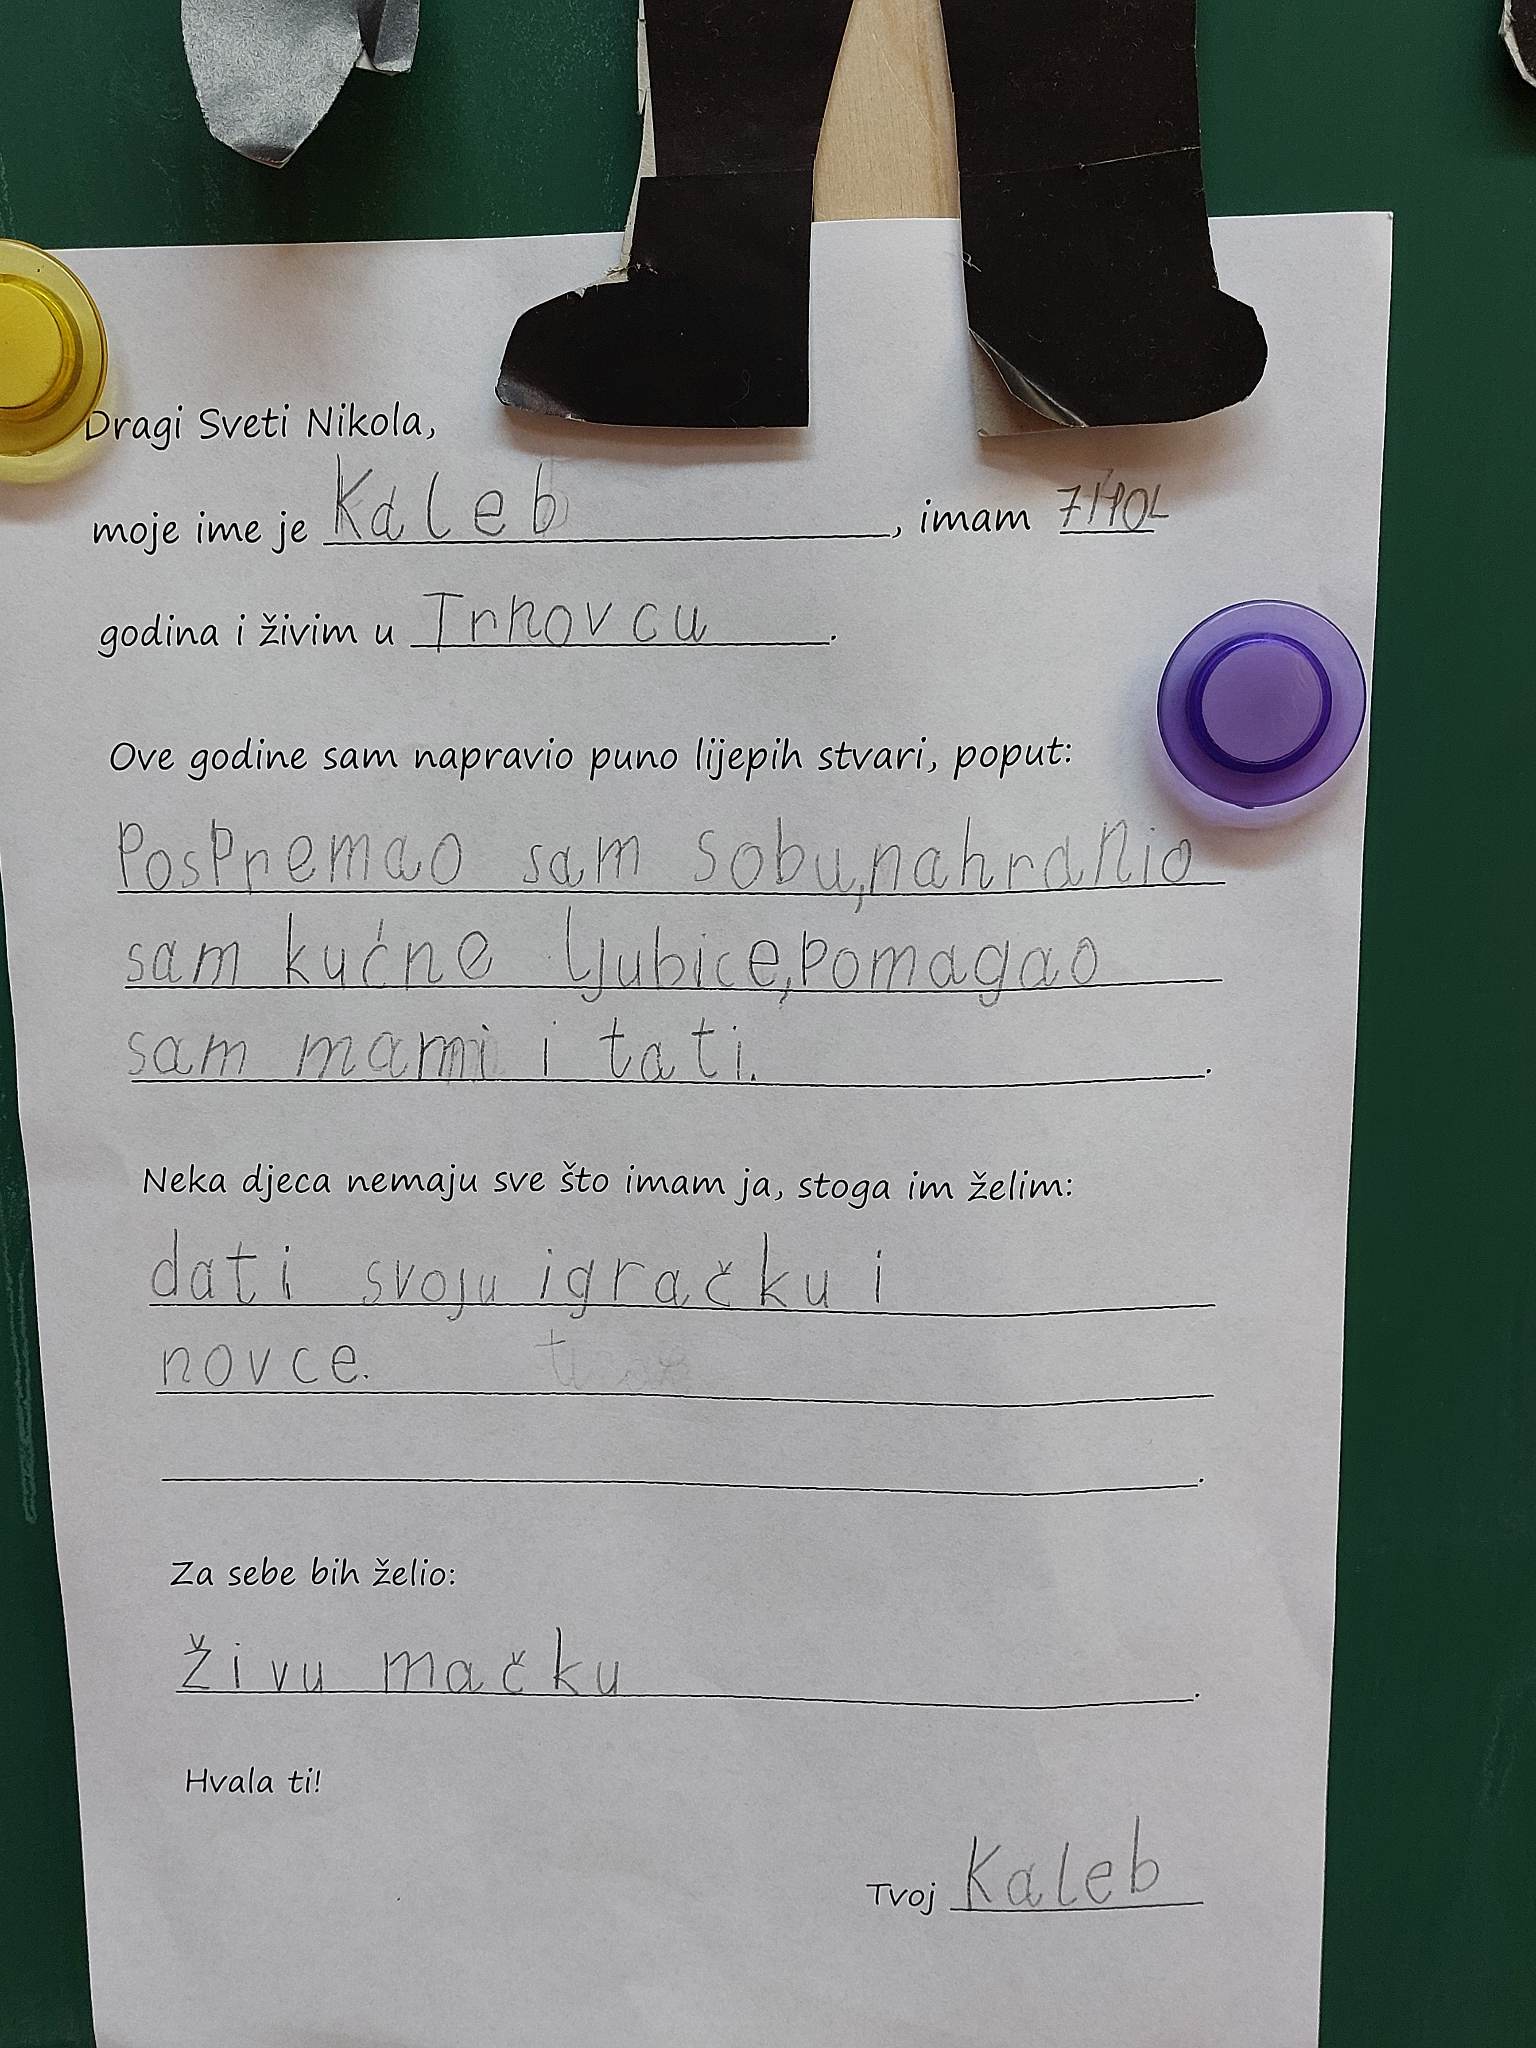 Dragi Sveti Nikola,
moje ime je Kaleb, imam 7 I POL
godina i živim u Trnovcu.
Ove godine sam napravio puno lijepih stvari, poput:
PosPremao sam sobu, nahranio
sam kućne ljubice, pomagao
sam mami i tati..
Neka djeca nemaju sve što imam ja, stoga im želim:
dati svoju igračku i
novce.
.
Za sebe bih želio:
živu mačku.
Hvala ti!
Tvoj Kaleb